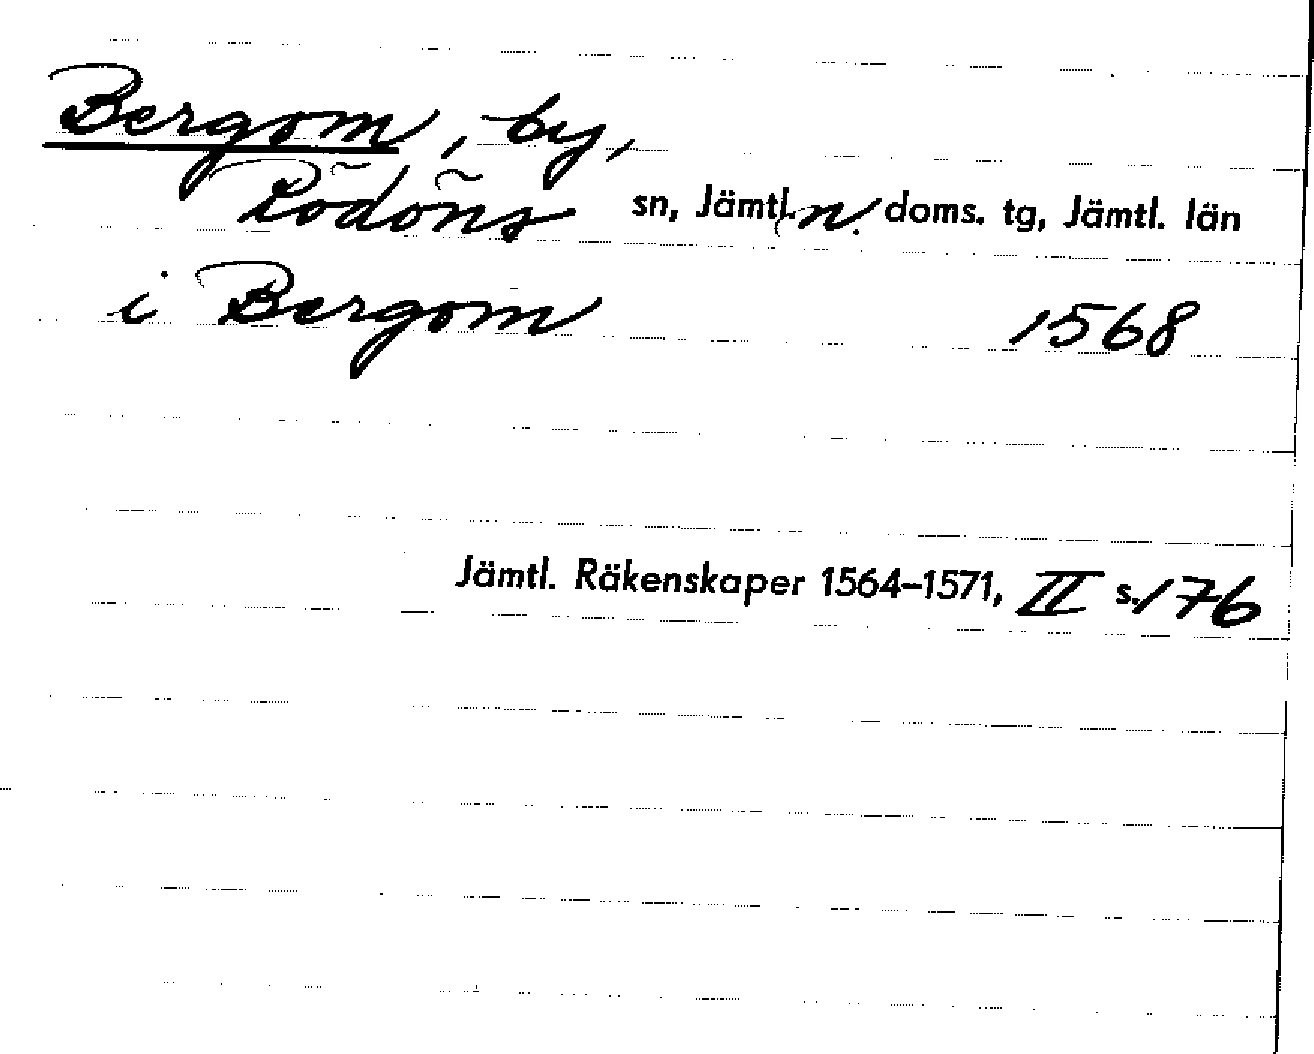 Bergom, by,
Rödöns sn, Jämtl. n. doms. tg, Jämtl. län
i Bergom 1568
Jämtl. Räkenskaper 1564–1571, II s. 176